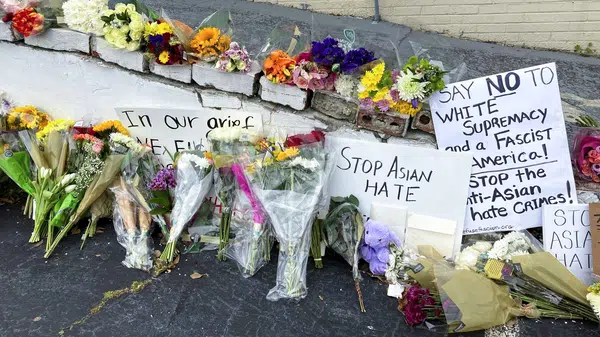 In our grief
STOP ASIAN
HATE
SAY NO TO
WHITE
SUPREMACY
and a FASCIST
America!
STOP the
Anti-Asian
hate CRIMES!
STOP
ASIA
HAT